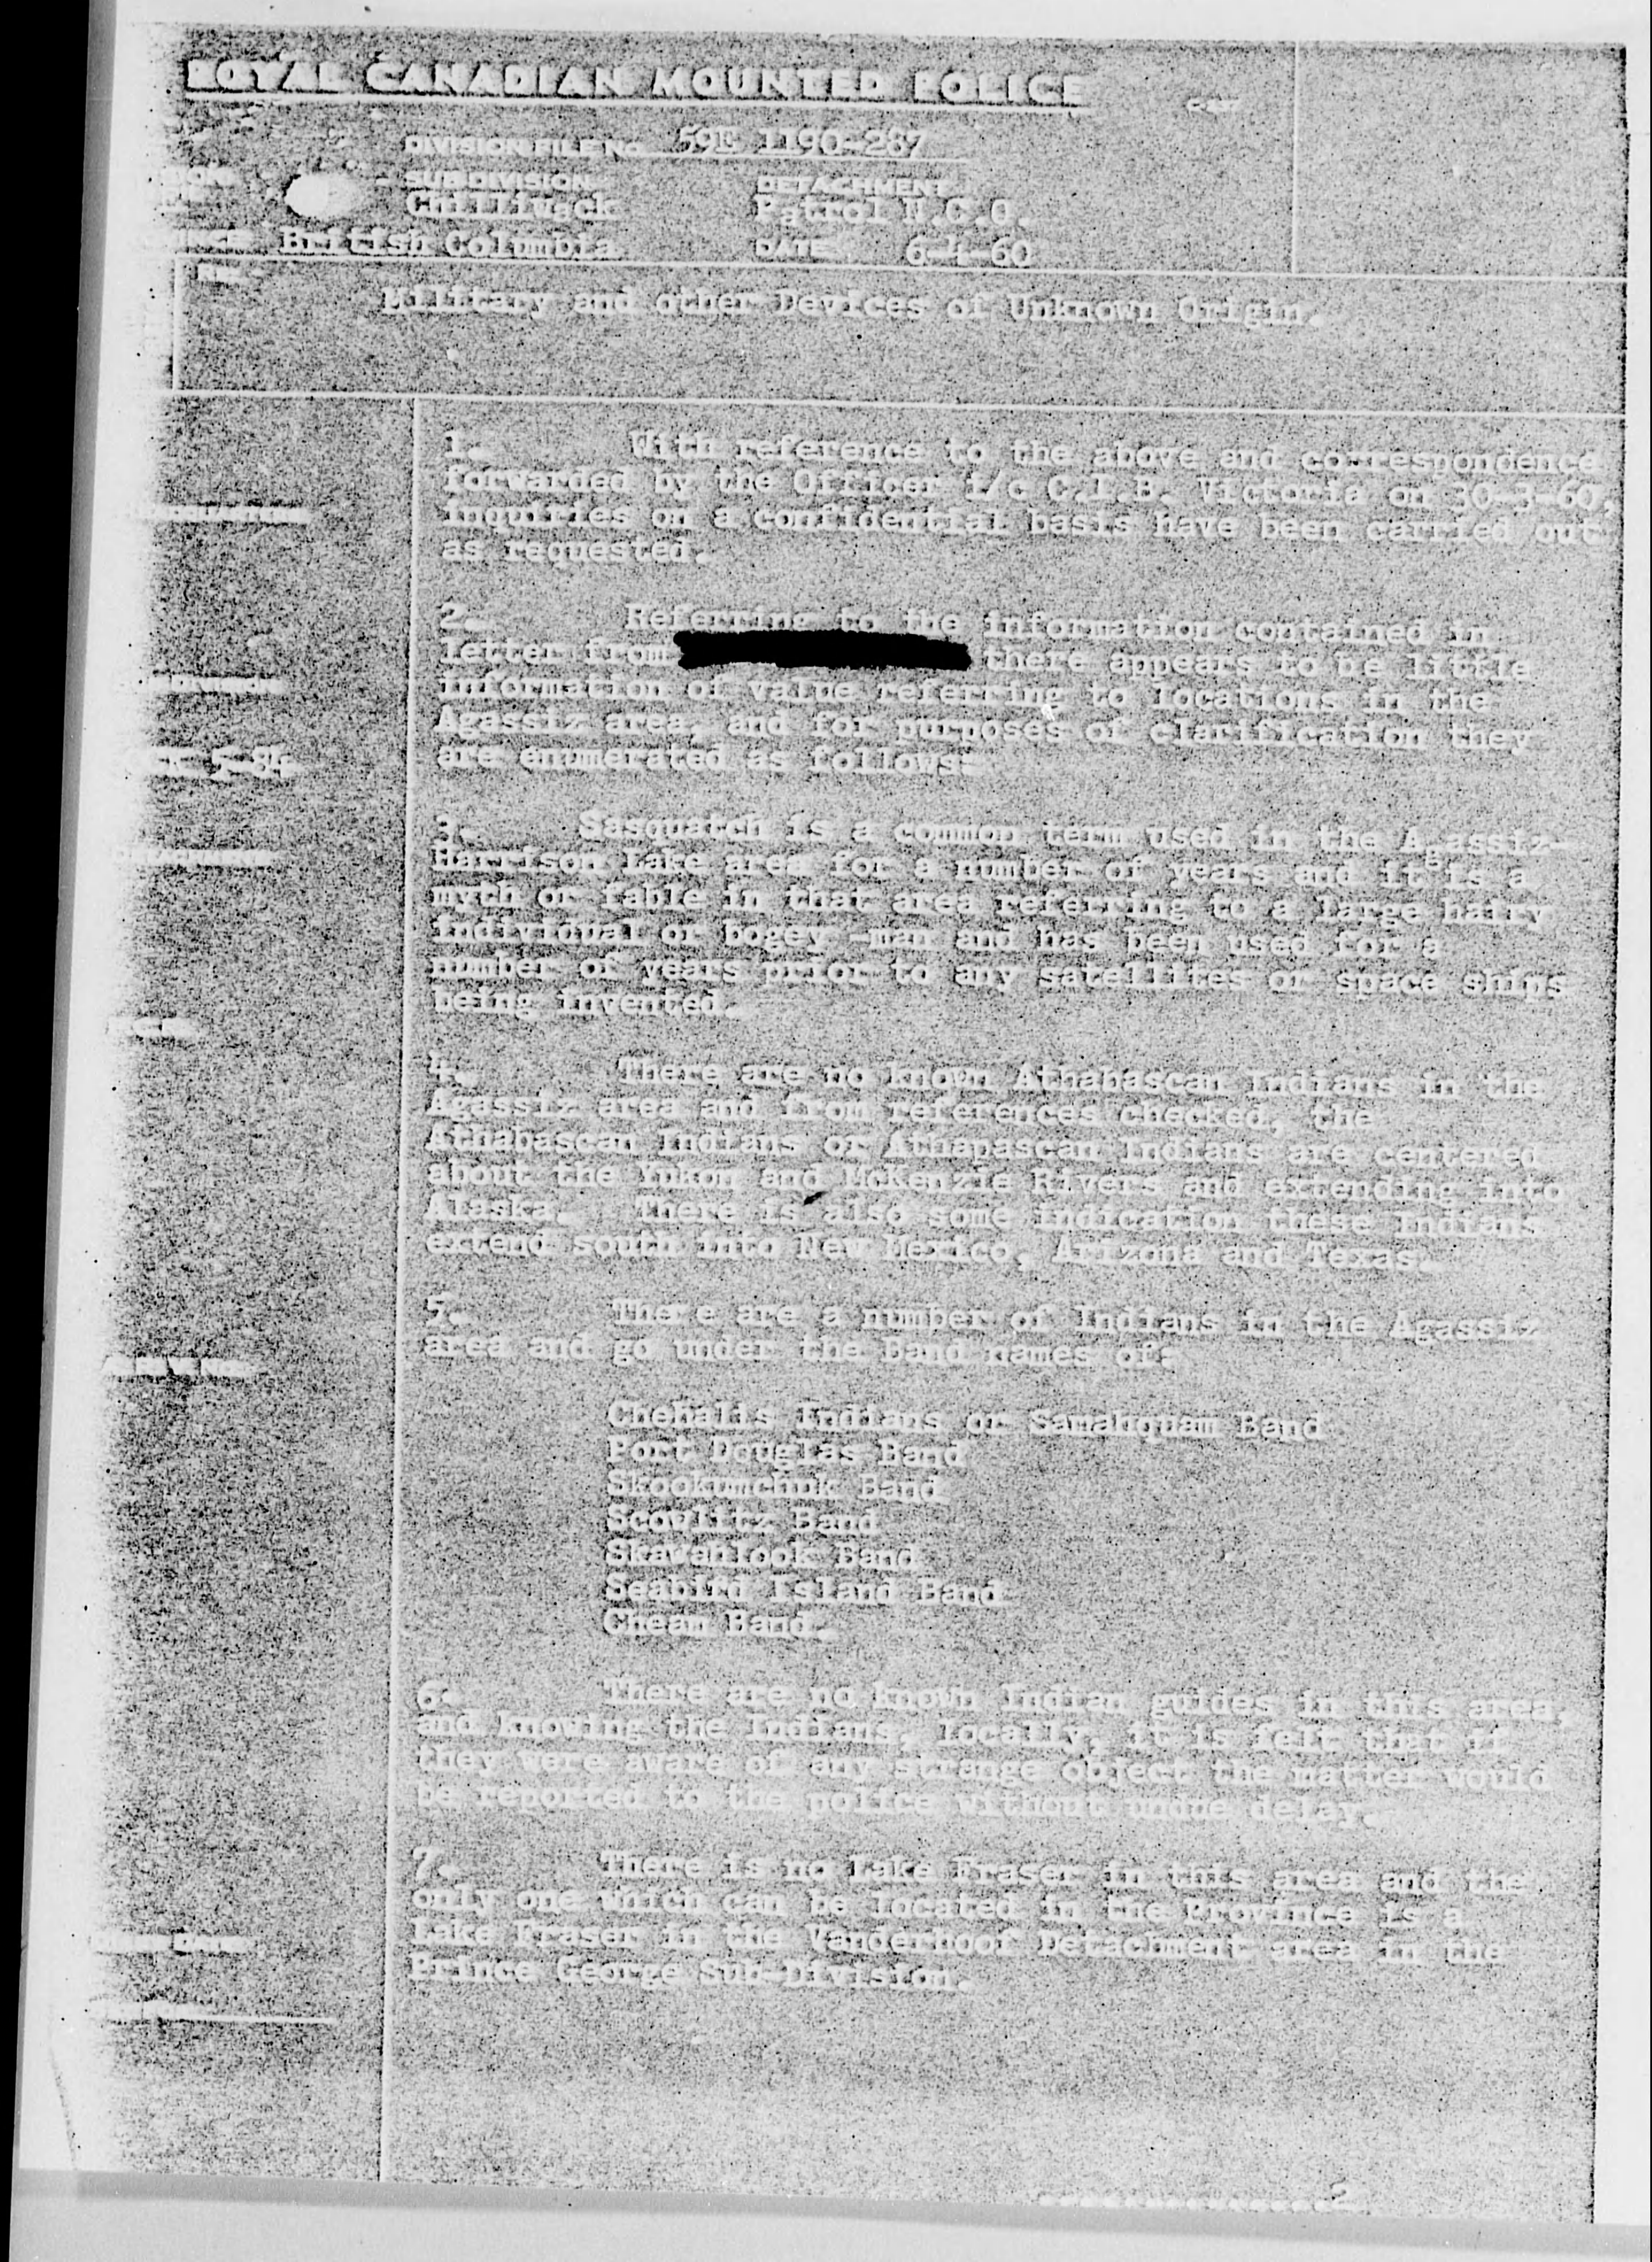 ROYAL CANADIAN MOUNTED POLICE
DIVISION FILE No. 59E 1190-287
SUB-DIVISION DETACHMENT
Chilliwack Patrol N.C.O.
British Columbia DATE 6-4-60
Military and other Devices of Unknown Origin.
1. With reference to the above and correspondence
forwarded by the Officer i/c C.I.B. Victoria on 30-3-60,
inquiries on a confidential basis have been carried out
as requested.
2. Referring to the information contained in
letter from there appears to be little
information of value referring to locations in the
Agassiz area, and for purposes of clarification they
are enumerated as follows:
3. Sasquatch is a common term used in the Agassiz-
Harrison Lake area for a number of years and it is a
myth or fable in that area referring to a large hairy
individual or bogey -man and has been used for a
number of years prior to any satellites or space ships
being invented.
4. There are no known Athabascan Indians in the
Agassiz area and from references checked, the
Athabascan Indians or Athapascan Indians are centered
about the Yukon and McKenzie Rivers and extending into
Alaska. There is also some indication these Indians
extend south into New Mexico, Arizona and Texas.
5. There are a number of Indians in the Agassiz
area and go under the band names of:
Chehalis Indians or Samahquam Band
Port Douglas Band
Skookumchuk Band
Scowlitz Band
Skawahlook Band
Seabird Island Band
Cheam Band.
6. There are no known Indian guides in this area,
and knowing the Indians, locally, it is felt that if
they were aware of any strange object the matter would
be reported to the police without undue delay.
7. There is no Lake Fraser in this area and the
only one which can be located in the Province is a
Lake Fraser in the Vanderhoof Detachment area in the
Prince George Sub-Division.
................2